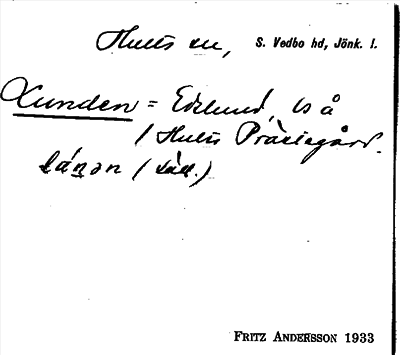 Hults en, S. Vedbo hd, Jönk. l.
Lunden = Edslund, ls å
/ Hults Prästgård.
(säll.)
FRITZ ANDERSSON 1933